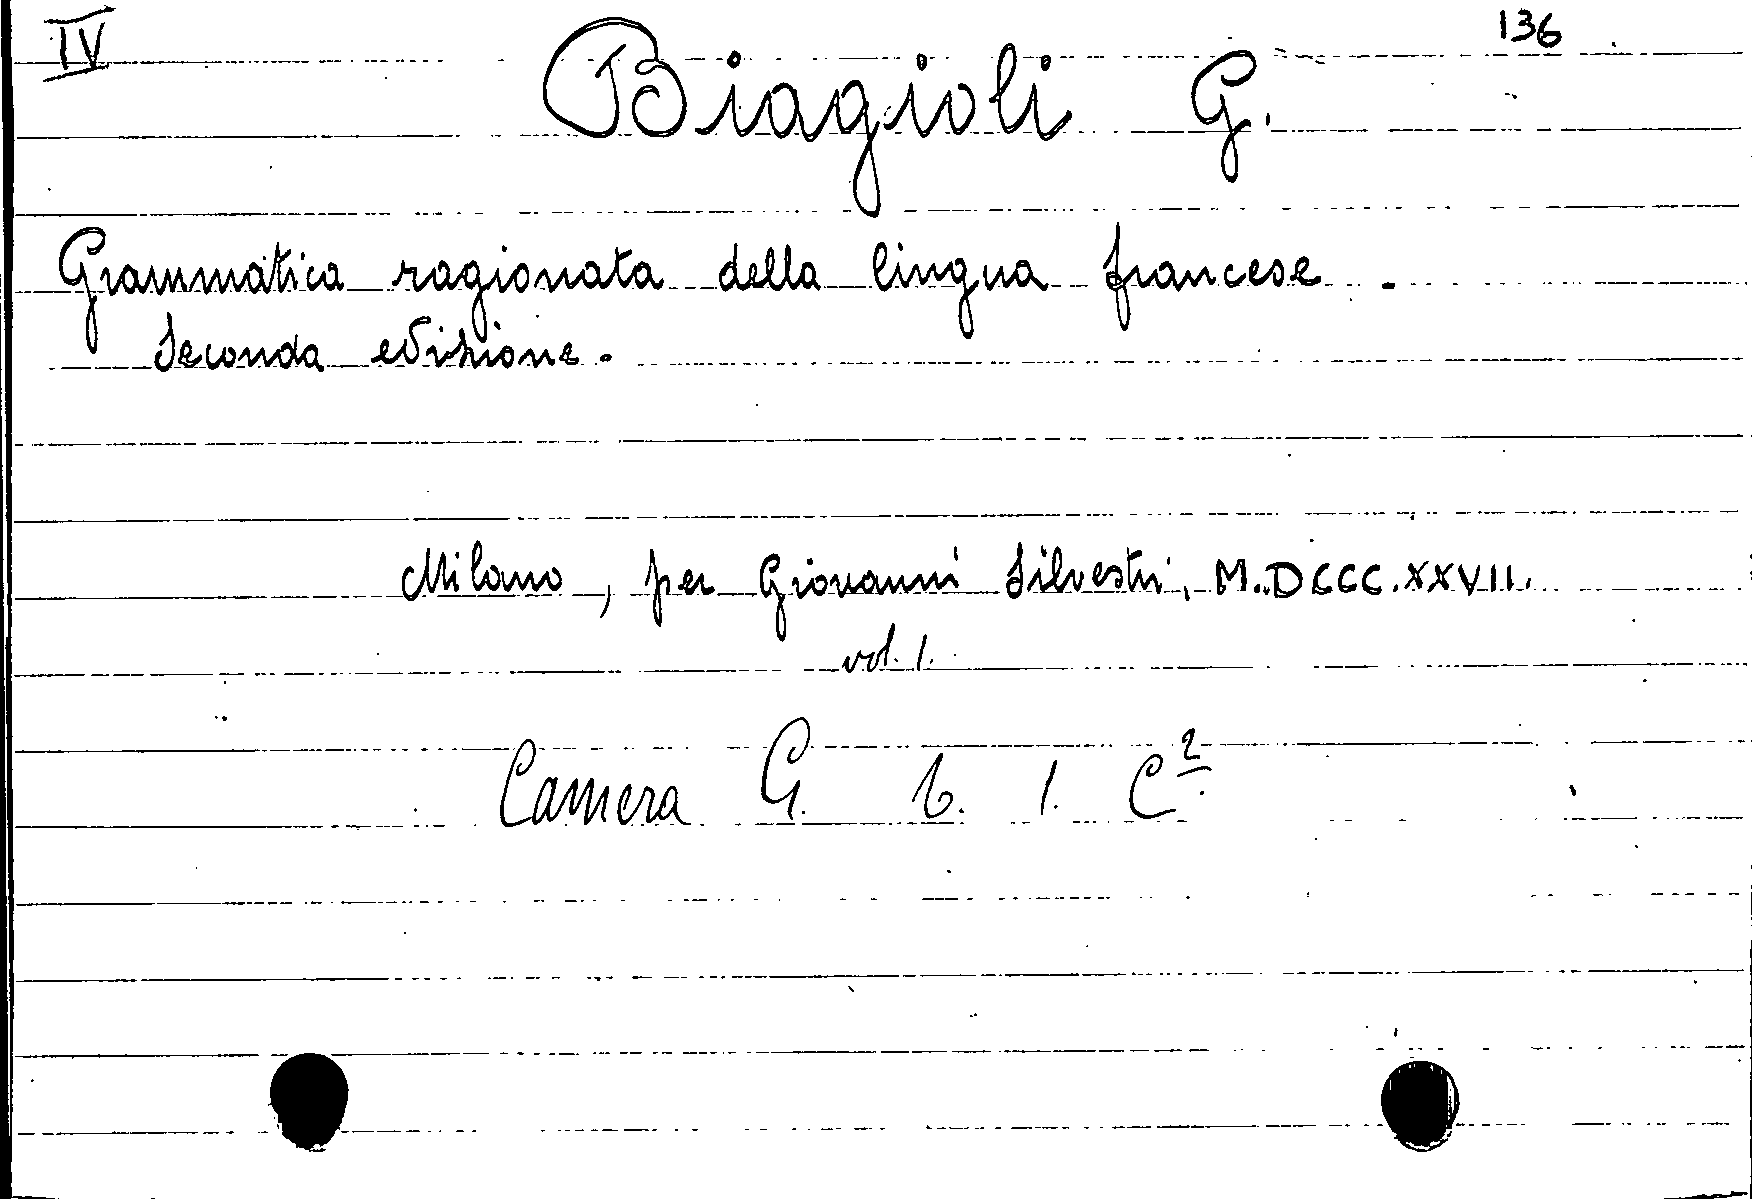 IV
136
Biagioli G.
Grammatica ragionata della lingua francese.
Seconda edizione.
Milano, per Giovanni Silvestri, M.DCCC.XXVII.
vol. 1.
Camera G. b. 1. C2.